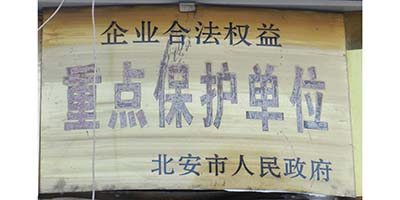 企业合法权益
重点保护单位
北安市人民政府